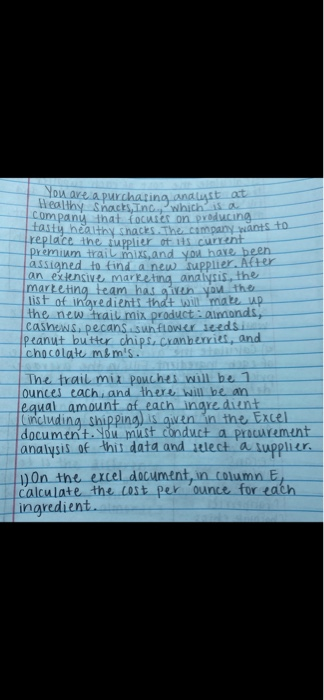 You are a purchasing analyst at
Healthy Snacks, Inc., which is a
company that focuses on producing
tasty healthy snacks. The company wants to
replace the supplier of its current
premium trail mixs, and you have been
assigned to find a new supplier. After
an extensive marketing analysis, the
marketing team has given you the
list of ingredients that will make up
the new trail mix product: almonds,
cashews, pecans, sunflower seeds,
peanut butter chips, cranberries, and
chocolate m&m's.
The trail mix pouches will be 7
ounces each, and there will be an
equal amount of each ingredient
(including shipping) is given in the Excel
document. You must conduct a procurement
analysis of this data and select a supplier.
1) On the excel document, in column E,
calculate the cost per ounce for each
ingredient.